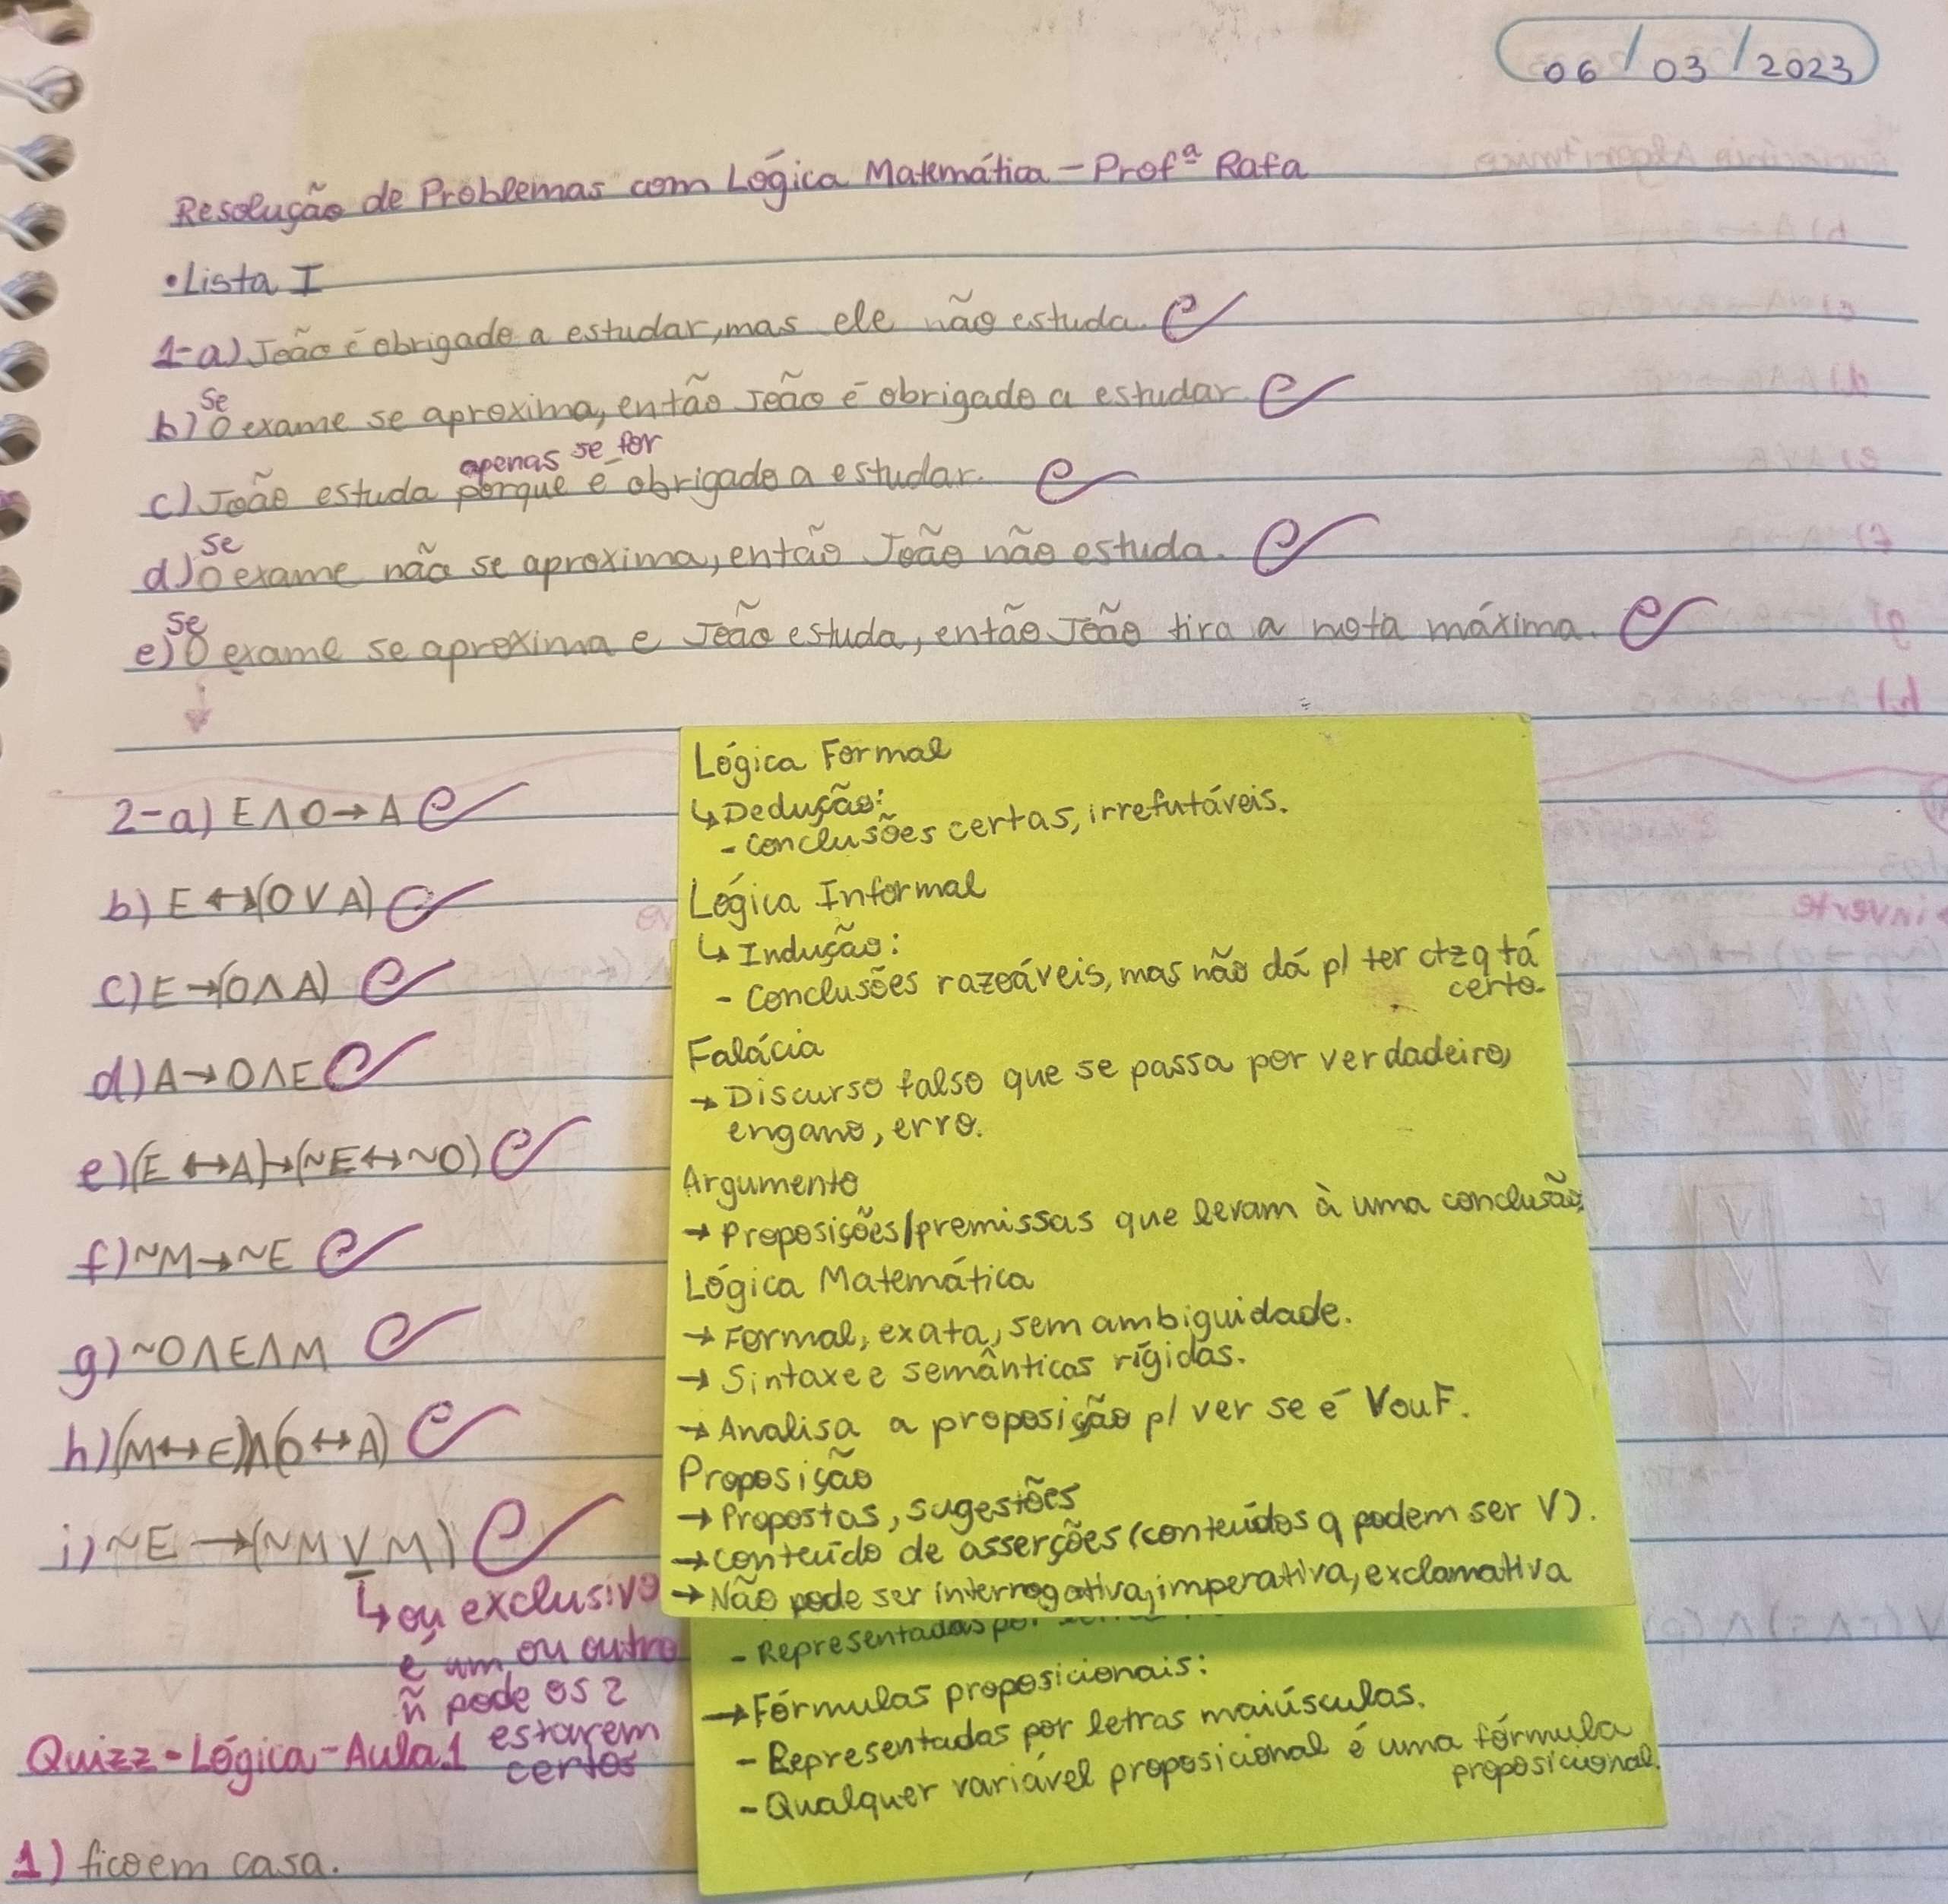 06/03/2023
Resolução de Problemas com Lógica Matemática - Profª Rafa
•Lista I
1-a) João é obrigado a estudar, mas ele não estuda.
Se
b) O exame se aproxima, então João é obrigado a estudar.
apenas se for
c) João estuda porque é obrigado a estudar.
Se
d) O exame não se aproxima, então João não estuda.
Se
e) O exame se aproxima e João estuda, então João tira a nota máxima.
2-a) E∧O→A
b) E↔(O∨A)
c) E→(O∧A)
d) A→O∧E
e) (E↔A)→(~E↔~O)
f) ~M→~E
g) ~O∧E∧M
h) (M↔E)∧(O↔A)
i) ~E→(~M⊻M)
↳ ou exclusivo
é um ou outro
ñ pode os 2
estarem
certos
Quizz - Lógica - Aula 1
1) fico em casa.
Lógica Formal
↳ Dedução:
- Conclusões certas, irrefutáveis.
Lógica Informal
↳ Indução:
- Conclusões razoáveis, mas não dá p/ ter ctz q tá
certo.
Falácia
→ Discurso falso que se passa por verdadeiro,
engano, erro.
Argumento
→ Proposições/premissas que levam à uma conclusão.
Lógica Matemática
→ Formal, exata, sem ambiguidade.
→ Sintaxe e semânticas rígidas.
→ Analisa a proposição p/ ver se é V ou F.
Proposição
→ Propostas, sugestões
→ conteúdo de asserções (conteúdos q podem ser V).
→ Não pode ser interrogativa, imperativa, exclamativa
- Representadas por
→ Fórmulas proposicionais:
- Representadas por letras maiúsculas.
- Qualquer variável proposicional é uma fórmula
proposicional.